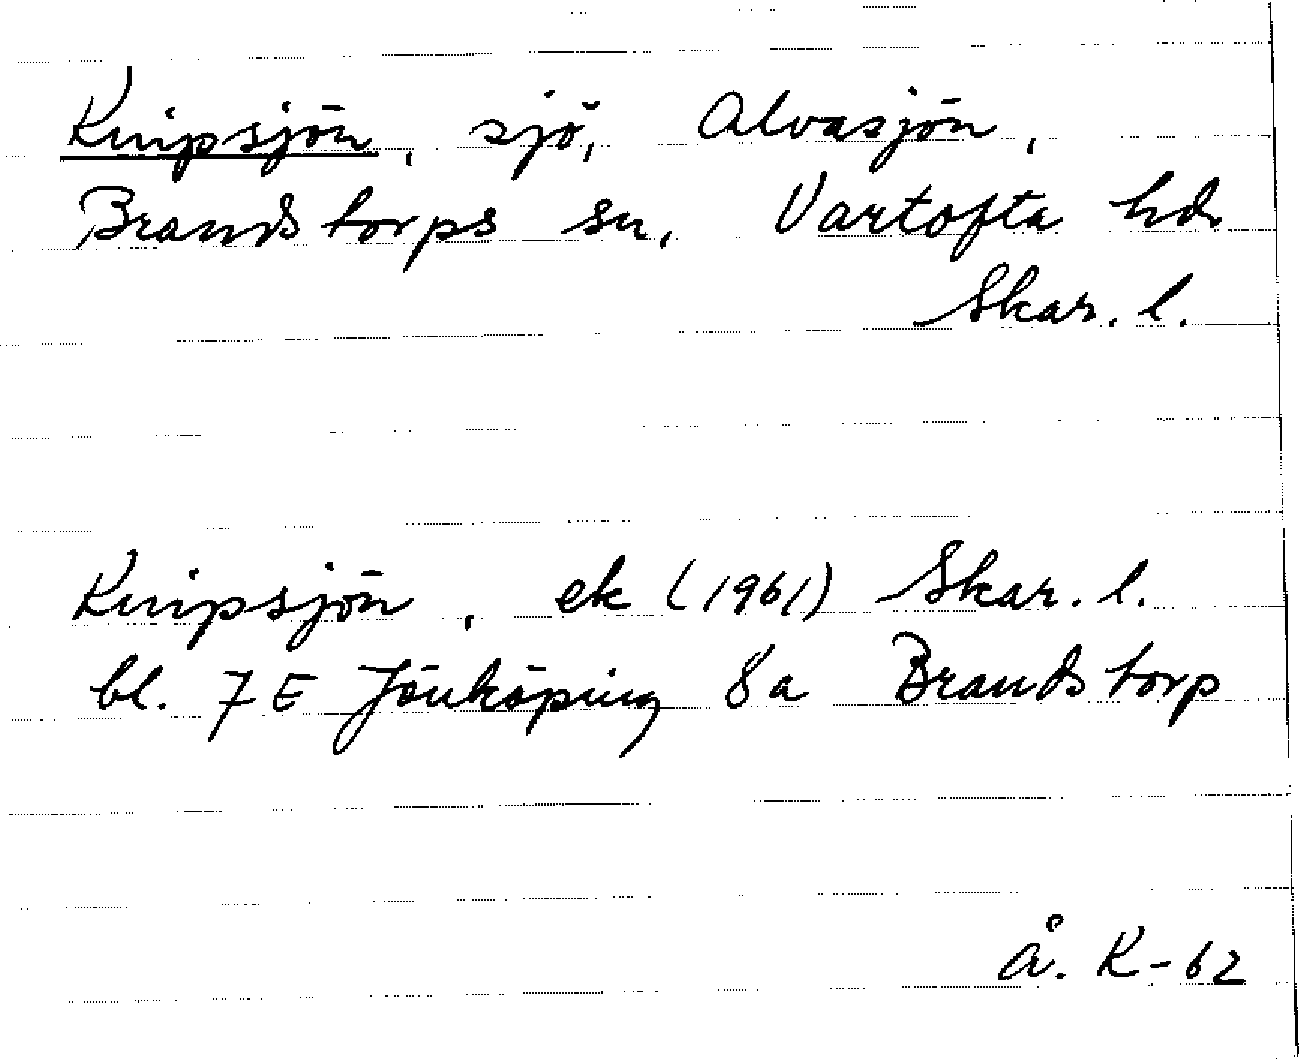 Knipsjön, sjö, Alvasjön,
Brandstorps sn, Vartofta hd
Skar. l.
Knipsjön, ek (1961) Skar. l.
bl. 7 E Jönköping 8a Brandstorp
Å. K-62